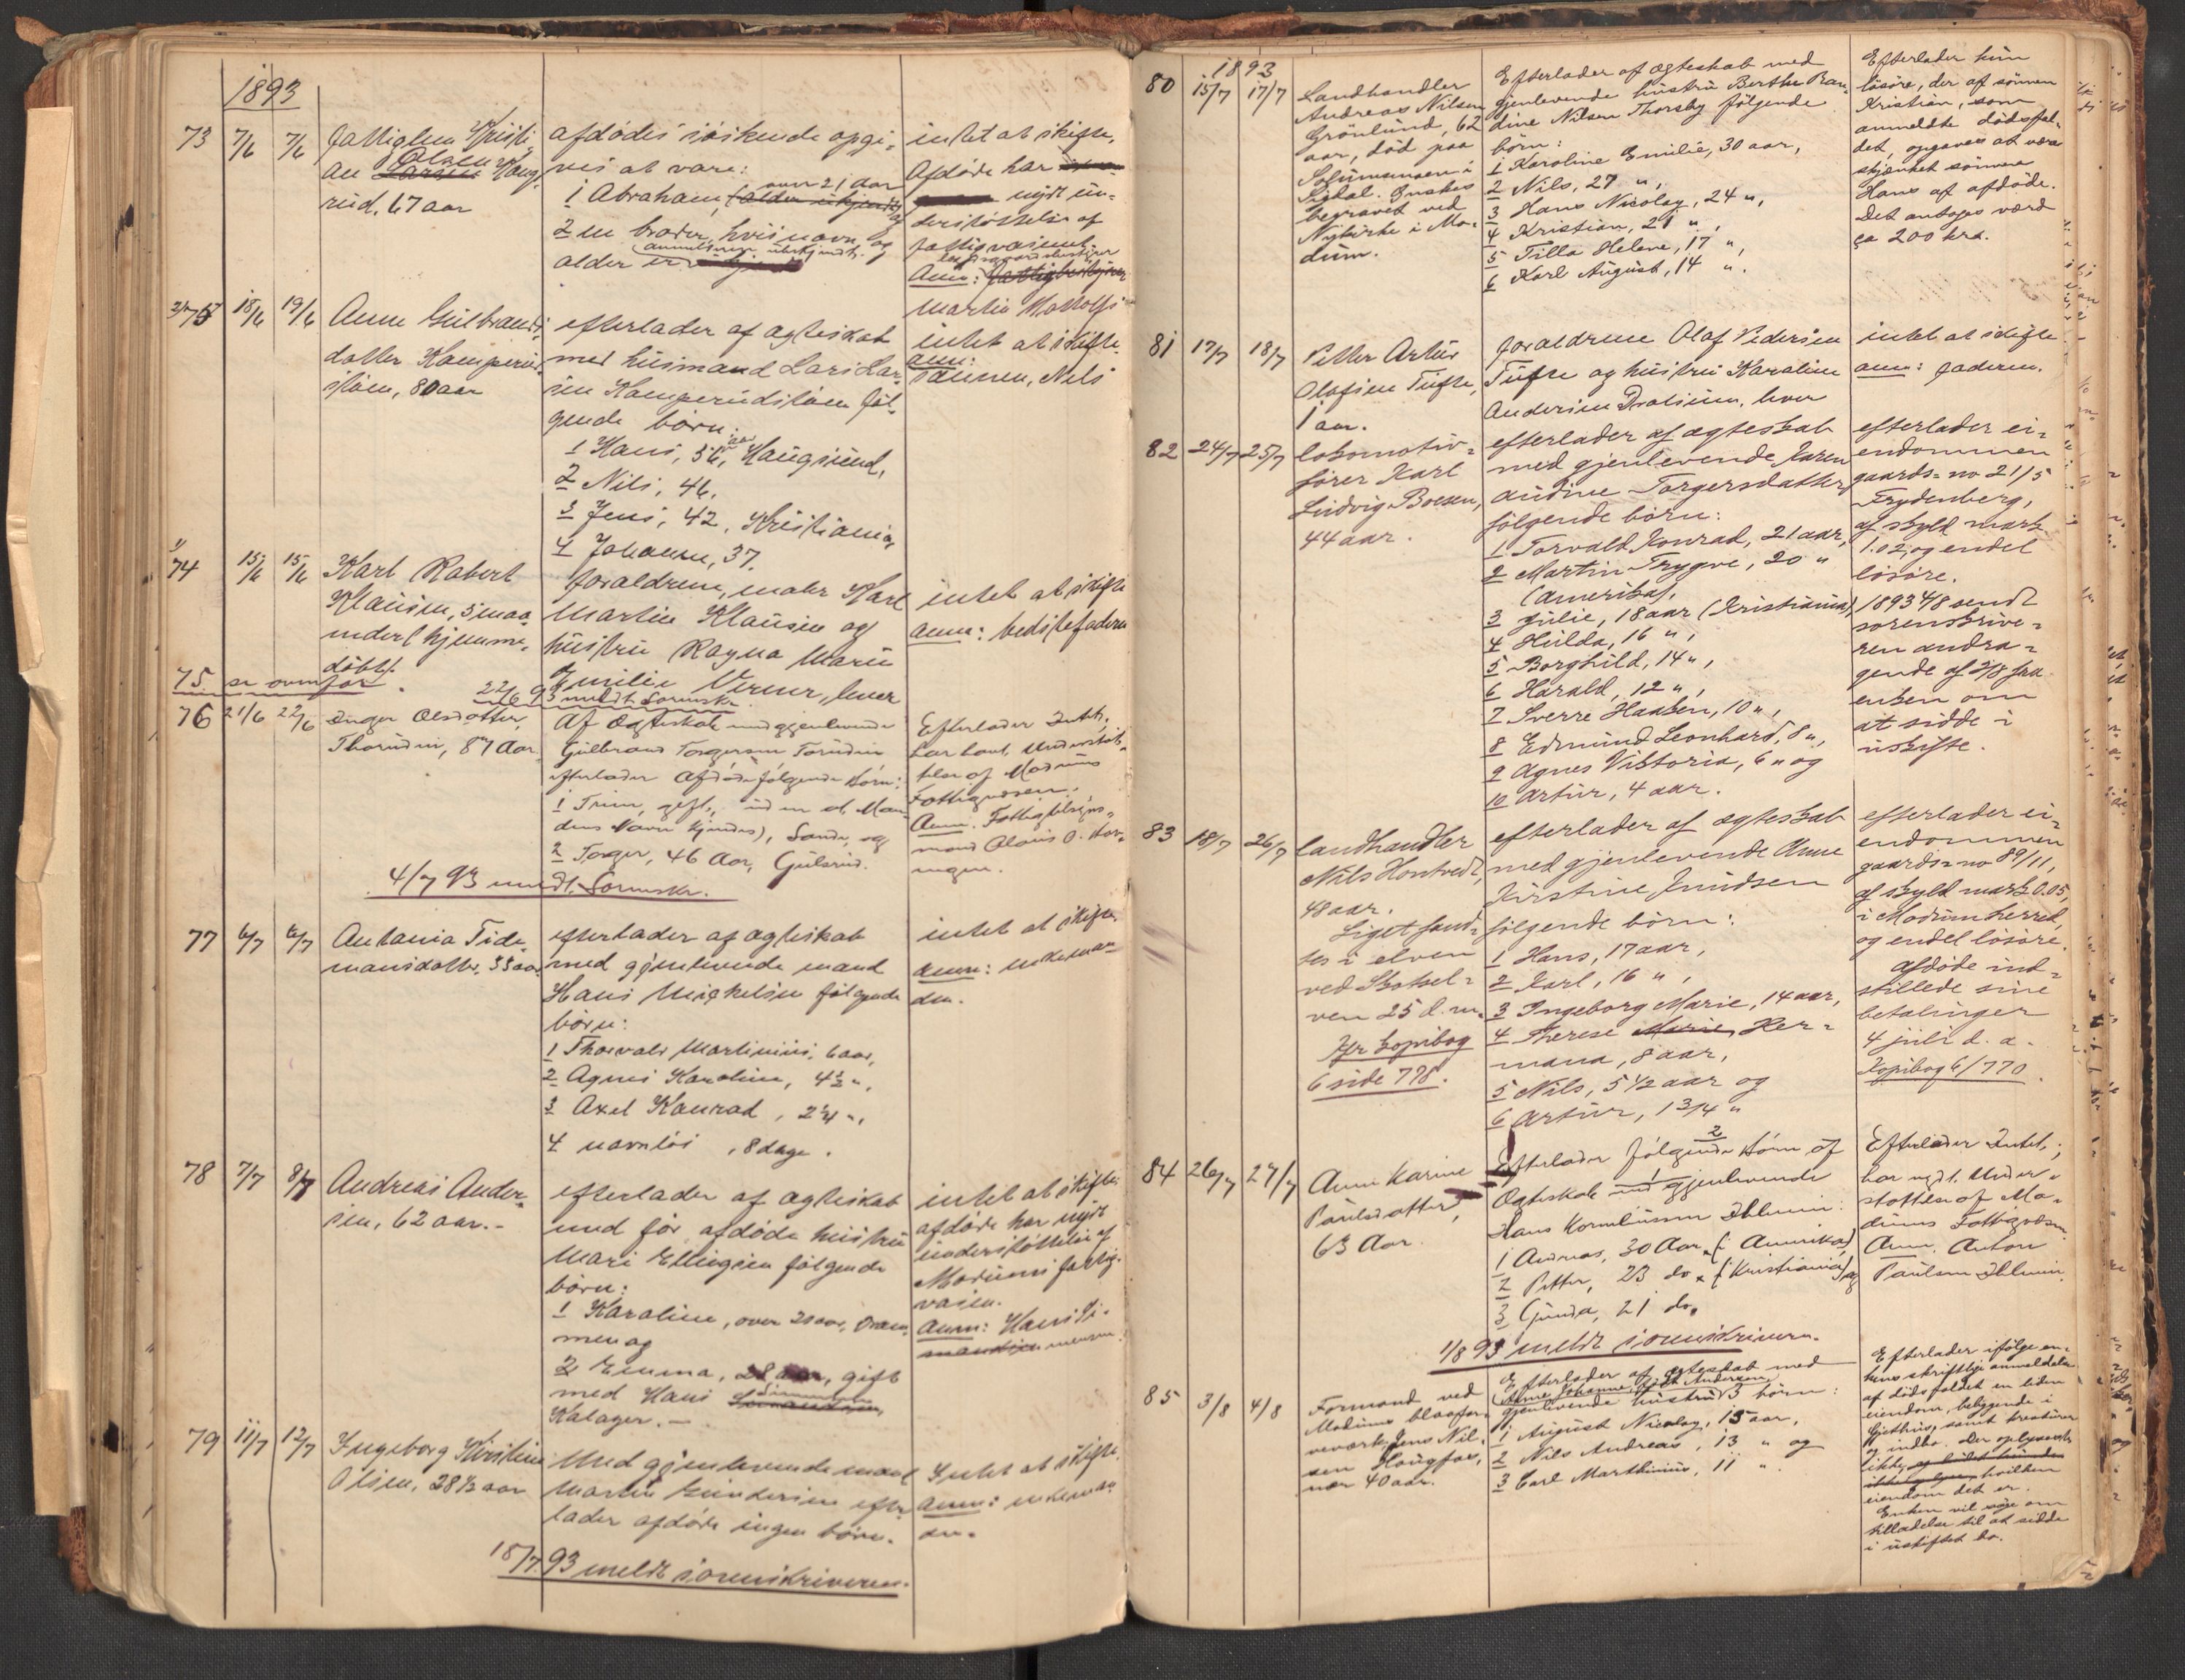 1893
73 7/6 7/6 fattiglem Kristi-
an Olsen Haug-
rud, 67 aar
afdødes søskende opgi-
ves at være:
1 Abraham, over 21 aar
2 en broder, hvis navn og
alder er
intet at skifte.
Afdøde har
nydt un-
derstøttelse af
fattigvæsenet.
Anm:
Martin
75 18/6 19/6 Anne Gulbrands-
datter Komperud-
støen, 80 aar
efterlader af ægteskab
med husmand Lars Lar-
sen Komperudstøen føl-
gende børn:
1 Hans, 56 aar, Haugsund,
2 Nils, 46,
3 Jens, 42, Kristiania,
4 Johanne, 37.
intet at skifte.
anm:
sønnen, Nils
74 15/6 15/6 Karl Robert
Klausen, 5 maa-
neder (hjemme-
døbt).
forældrene, maler Karl
Martin Klausen og
hustru Ragna Marie
Emilie Verner, lever
intet at skifte
anm: bedstefaderen
75 se ovenfor
22/6 93 meldt Sorenskr.
76 21/6 22/6 Inger Olsdatter
Thorudin, 87 Aar
Af Ægteskab med gjenlevende
Gulbrand Torgersen Torudin
efterlader Afdøde følgende Børn:
2 Torger, 46 Aar, Gulsrud.
Efterlader Intet,
har havt Understøt-
telse af Modums
Fattigvæsen.
Anm. Fattigtilsyns-
mand Olaus O.
4/7 93 meldt Sorenskr.
77 6/7 6/7 Antonia Tide-
mansdatter, 33 aar
efterlader af ægteskab
med gjenlevende mand
Hans Mickelsen følgende
børn:
1 Thorvald Martinius, 6 aar,
2 Agnes Karoline, 4½ ",
3 Axel Konrad, 2¼ ",
4 navnløs, 8 dage.
intet at skifte.
Anm: enkeman-
den.
78 7/7 8/7 Andreas Ander-
sen, 62 aar.-
efterlader af ægteskab
med før afdøde hustru
Mari Ellingsen følgende
børn:
1 Karoline, over 20 aar, Dram-
men og
2 Emma, 28 aar, gift
med Hans Simensen
Kalager.-
intet at skifte.
afdøde har nydt
understøttelse af
Modums fattig-
væsen.
Anm: Hans Si-
mensen.
79 11/7 12/7 Ingeborg Kirstine
Olsen, 28½ aar
Med gjenlevende mand
Martin Gundersen efter-
lader afdøde ingen børn.
Intet at skifte.
Anm: enkeman-
den.
18/7 93 meldt sorenskriveren.
1893
80 15/7 17/7 Landhandler
Andreas Nilsen
Grönlund, 62
aar, död paa
Solumsmoen i
Sigdal. Ønskes
begravet ved
Nykirke i Mo-
dum.
Efterlader af ægteskab med
gjenlevende hustru Berthe Ran-
dine Nilsen Thorsby følgende
børn:
1 Karoline Emilie, 30 aar,
2 Nils, 27 ",
3 Hans Nicolay, 24 ",
4 Kristian, 21 ",
5 Tilla Helene, 17 ",
6 Karl August, 14 ".
Efterlader kun
lösöre, der af sönnen
Kristian, som
anmeldte dödsfal-
det, opgaves at være
skjænket sönnen
Hans af afdöde.
Det antages værd
ca 200 kr.
81 17/7 18/7 Petter Artur
Olafsen Tufte,
1 aar.
forældrene Olaf Pedersen
Tufte og hustru Karoline
Andersen Drolsum, lever
intet at skifte
anm: faderen.
82 24/7 25/7 lokomotiv-
förer Karl
Ludvig Boesen,
44 aar.
efterlader af ægteskab
med gjenlevende Karen
Audine Torgersdatter
følgende börn:
1 Torvald Konrad, 21 aar,
2 Martin Trygve, 20 "
(Amerika),
3 Julie, 18 aar (Kristiania),
4 Hulda, 16 ",
5 Borghild, 14 ",
6 Harald, 12 ",
7 Sverre Haakon, 10 ",
8 Edmund Leonhard, 8 ",
9 Agnes Viktoria, 6 " og
10 Artur, 4 aar.
efterlader ei-
endommen
gaards-no 21/5
Frydenberg,
af skyld mark
1.02, og endel
lösöre.
1893 4/8 sendt
sorenskrive-
ren andra-
gende af 2/8 fra
enken om
at sidde i
uskifte.
83 18/7 26/7 landhandler
Nils Hontvedt,
48 aar.
Liget fand-
tes i elven
ved Skotsel-
ven 25 d. m.
Jfr kopibog
6 side 778.
efterlader af ægteskab
med gjenlevende Anne
Kirstine Knudsen
følgende börn:
1 Hans, 17 aar,
2 Karl, 16 ",
3 Ingeborg Marie, 14 aar,
4 Therese Marie Her-
mana, 8 aar,
5 Nils, 5 1/2 aar og
6 Artur, 1 3/4 "
efterlader ei-
endommen
gaards-no 89/11,
af skyld mark 0.05,
i Modum herred,
og endel lösöre.
Afdöde ind-
stillede sine
betalinger
4 juli d. a.
Kopibog 6/770.
84 26/7 27/7 Anne Karine
Paulsdatter,
63 Aar.
Efterlader følgende Børn af
Ægteskab med gjenlevende
Hans Korneliussen Ihlemin:
1 Andreas, 30 Aar, (i Amerika)
2 Petter, 23 do (i Kristiania) og
3 Gunda, 21 do.
Efterlader Intet,
har nydt Under-
støttelse af Mo-
dums Fattigvæsen.
Anm. Anton
Paulsen Ihlemin.
1/8 93 meldt sorenskriveren.
85 3/8 4/8 Formand ved
Modums blaafar-
veværk Jens Nil-
sen Haugfos,
nær 40 aar.
Efterlader af ægteskab med
(Anne Johanne Andersen)
gjenlevende hustru 3 børn:
1 August Nicolay, 15 aar,
2 Nils Andreas, 13 " og
3 Carl Marthinius, 11 ".
Efterlader ifølge en-
kens skriftlige anmeldelse
af dødsfaldet en liden
eiendom, beliggende i
Gjethus, samt kreaturer
og indbo. Der oplystes
ikke
hvilken
eiendom det er.
Enken vil søge om
tilladelse til at sidde
i uskiftet bo.